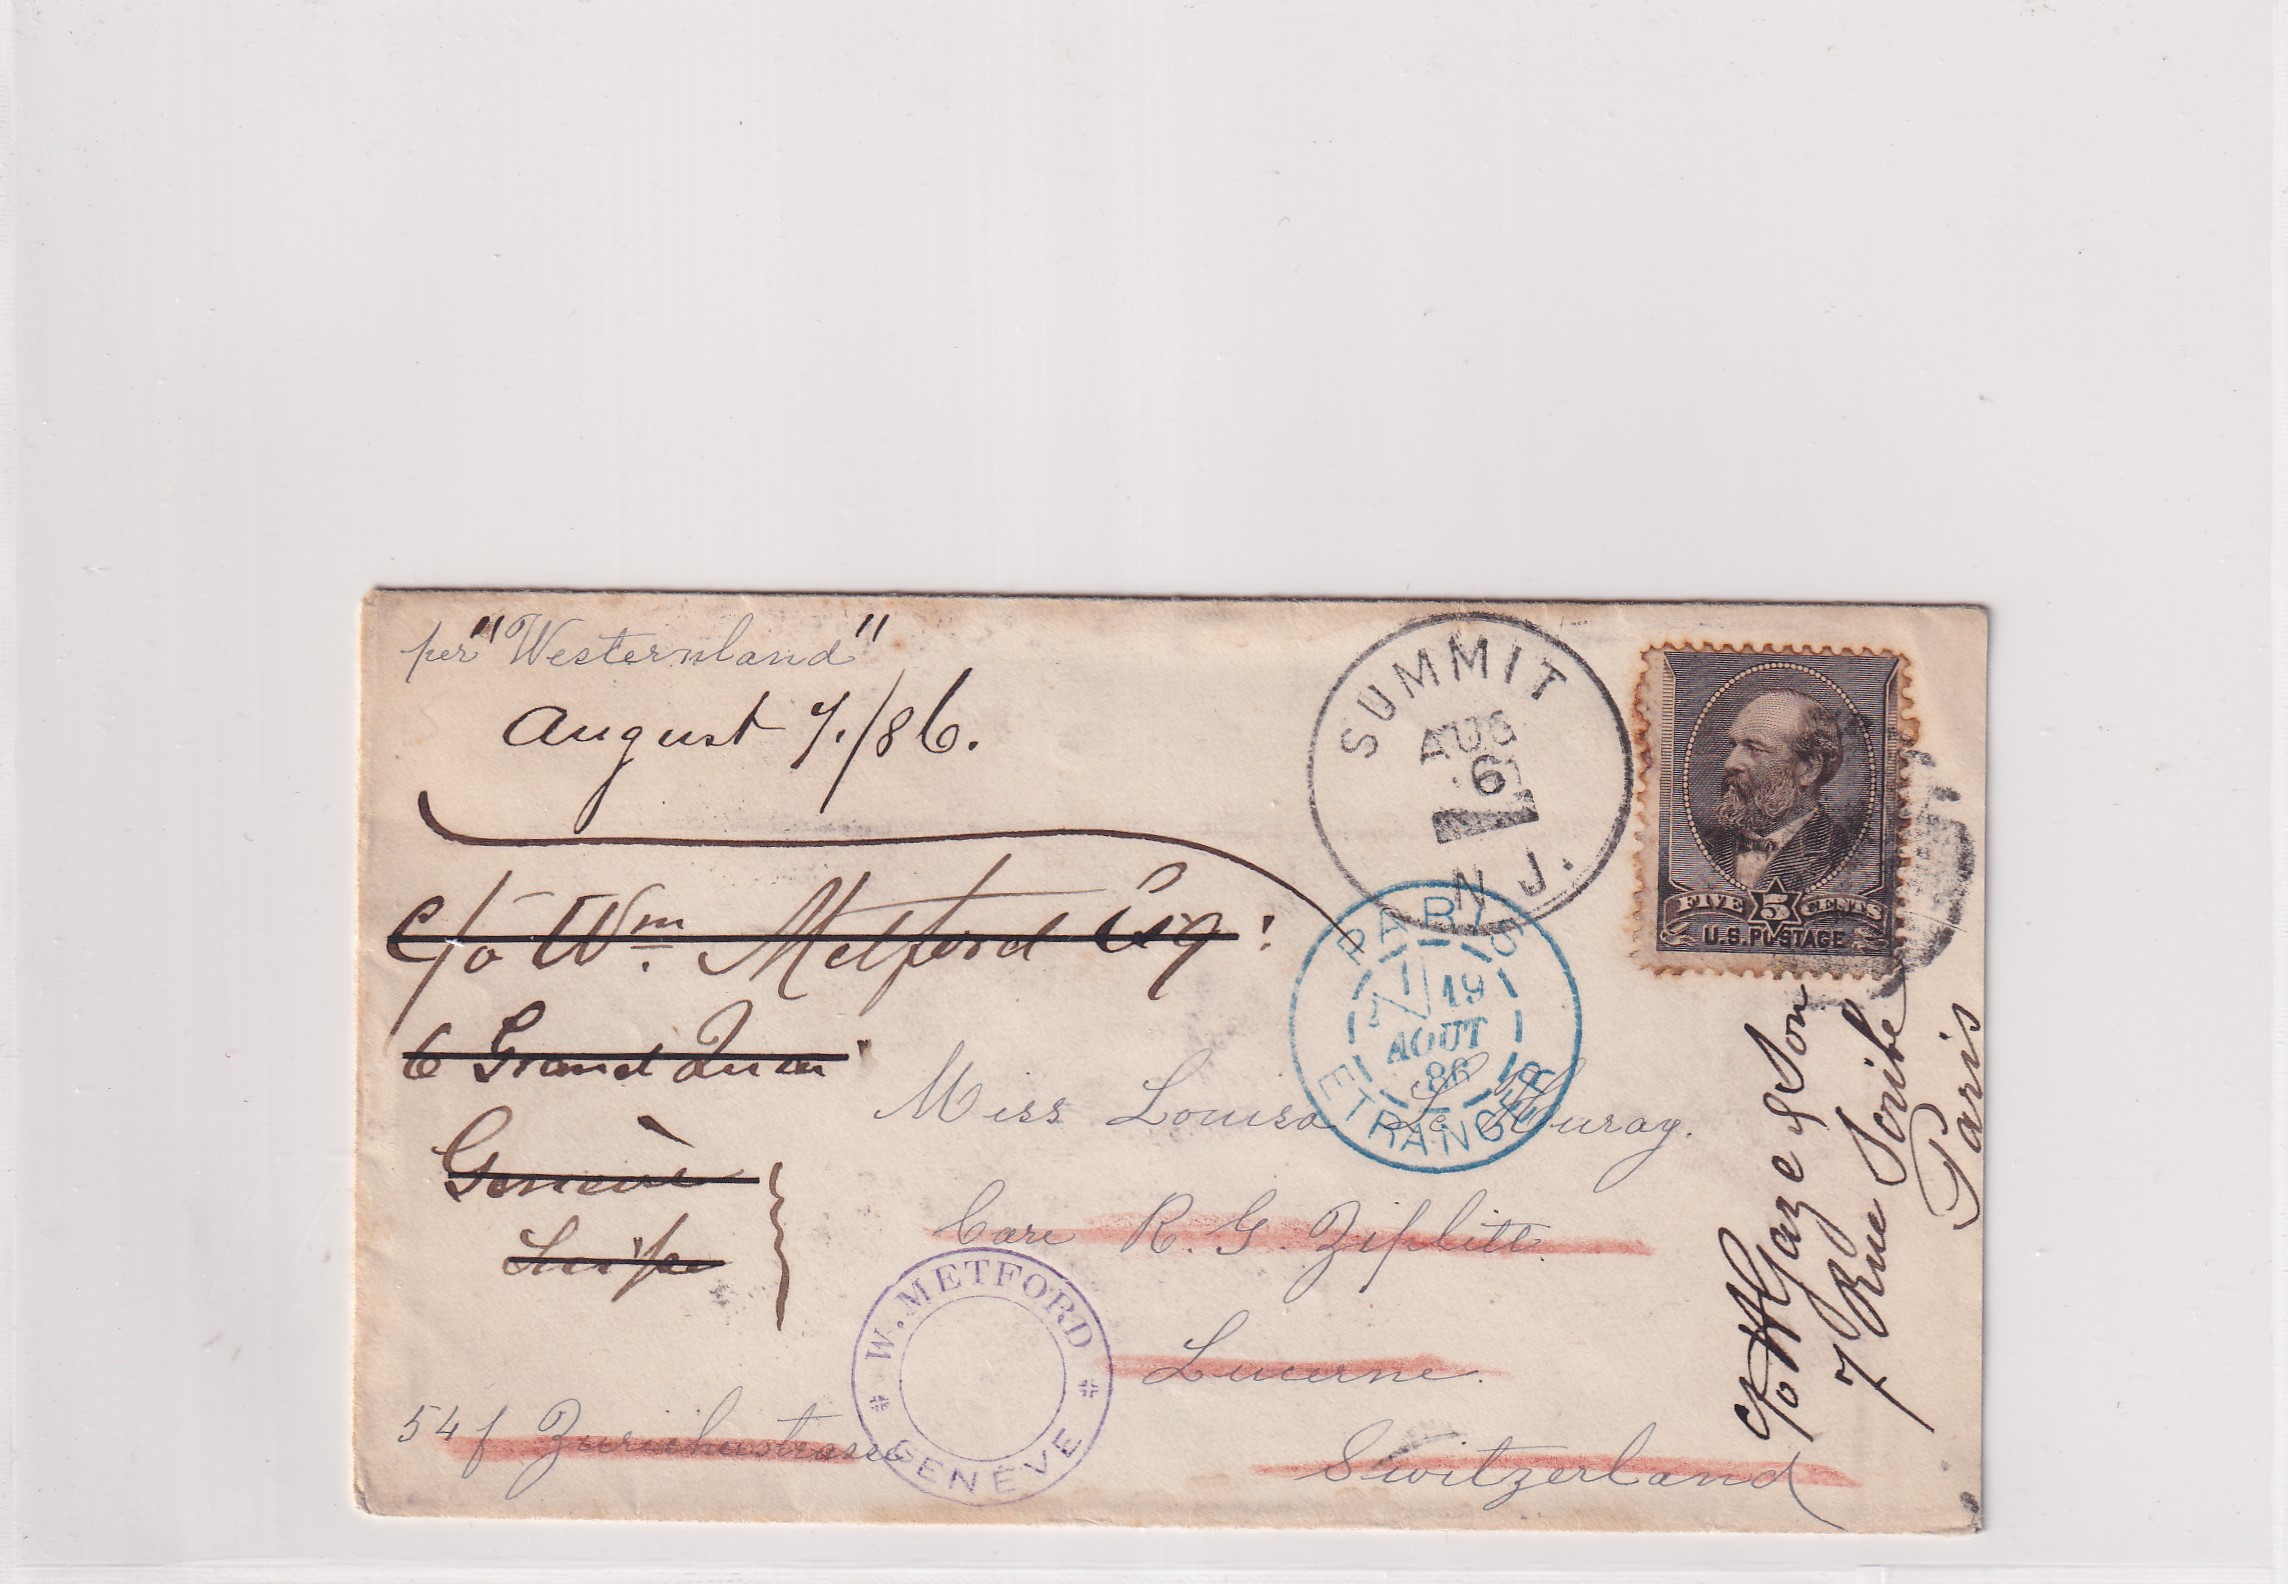 per "Westernland"
August 7./86.
c/o Wm. Metford Esq.
6 Grand Quai
Genève
SUMMIT
AUG
6
N.J.
FIVE 5 CENTS
U.S. POSTAGE
PARIS
19
AOUT
86
ETRANGER
Miss Louisa Le Huray.
Care R. G. Ziplitt.
Lucerne.
Switzerland
54 f Zurichustrasse
W. METFORD
GENÈVE
c/o H Gaze & Son
7 Rue Scribe
Paris